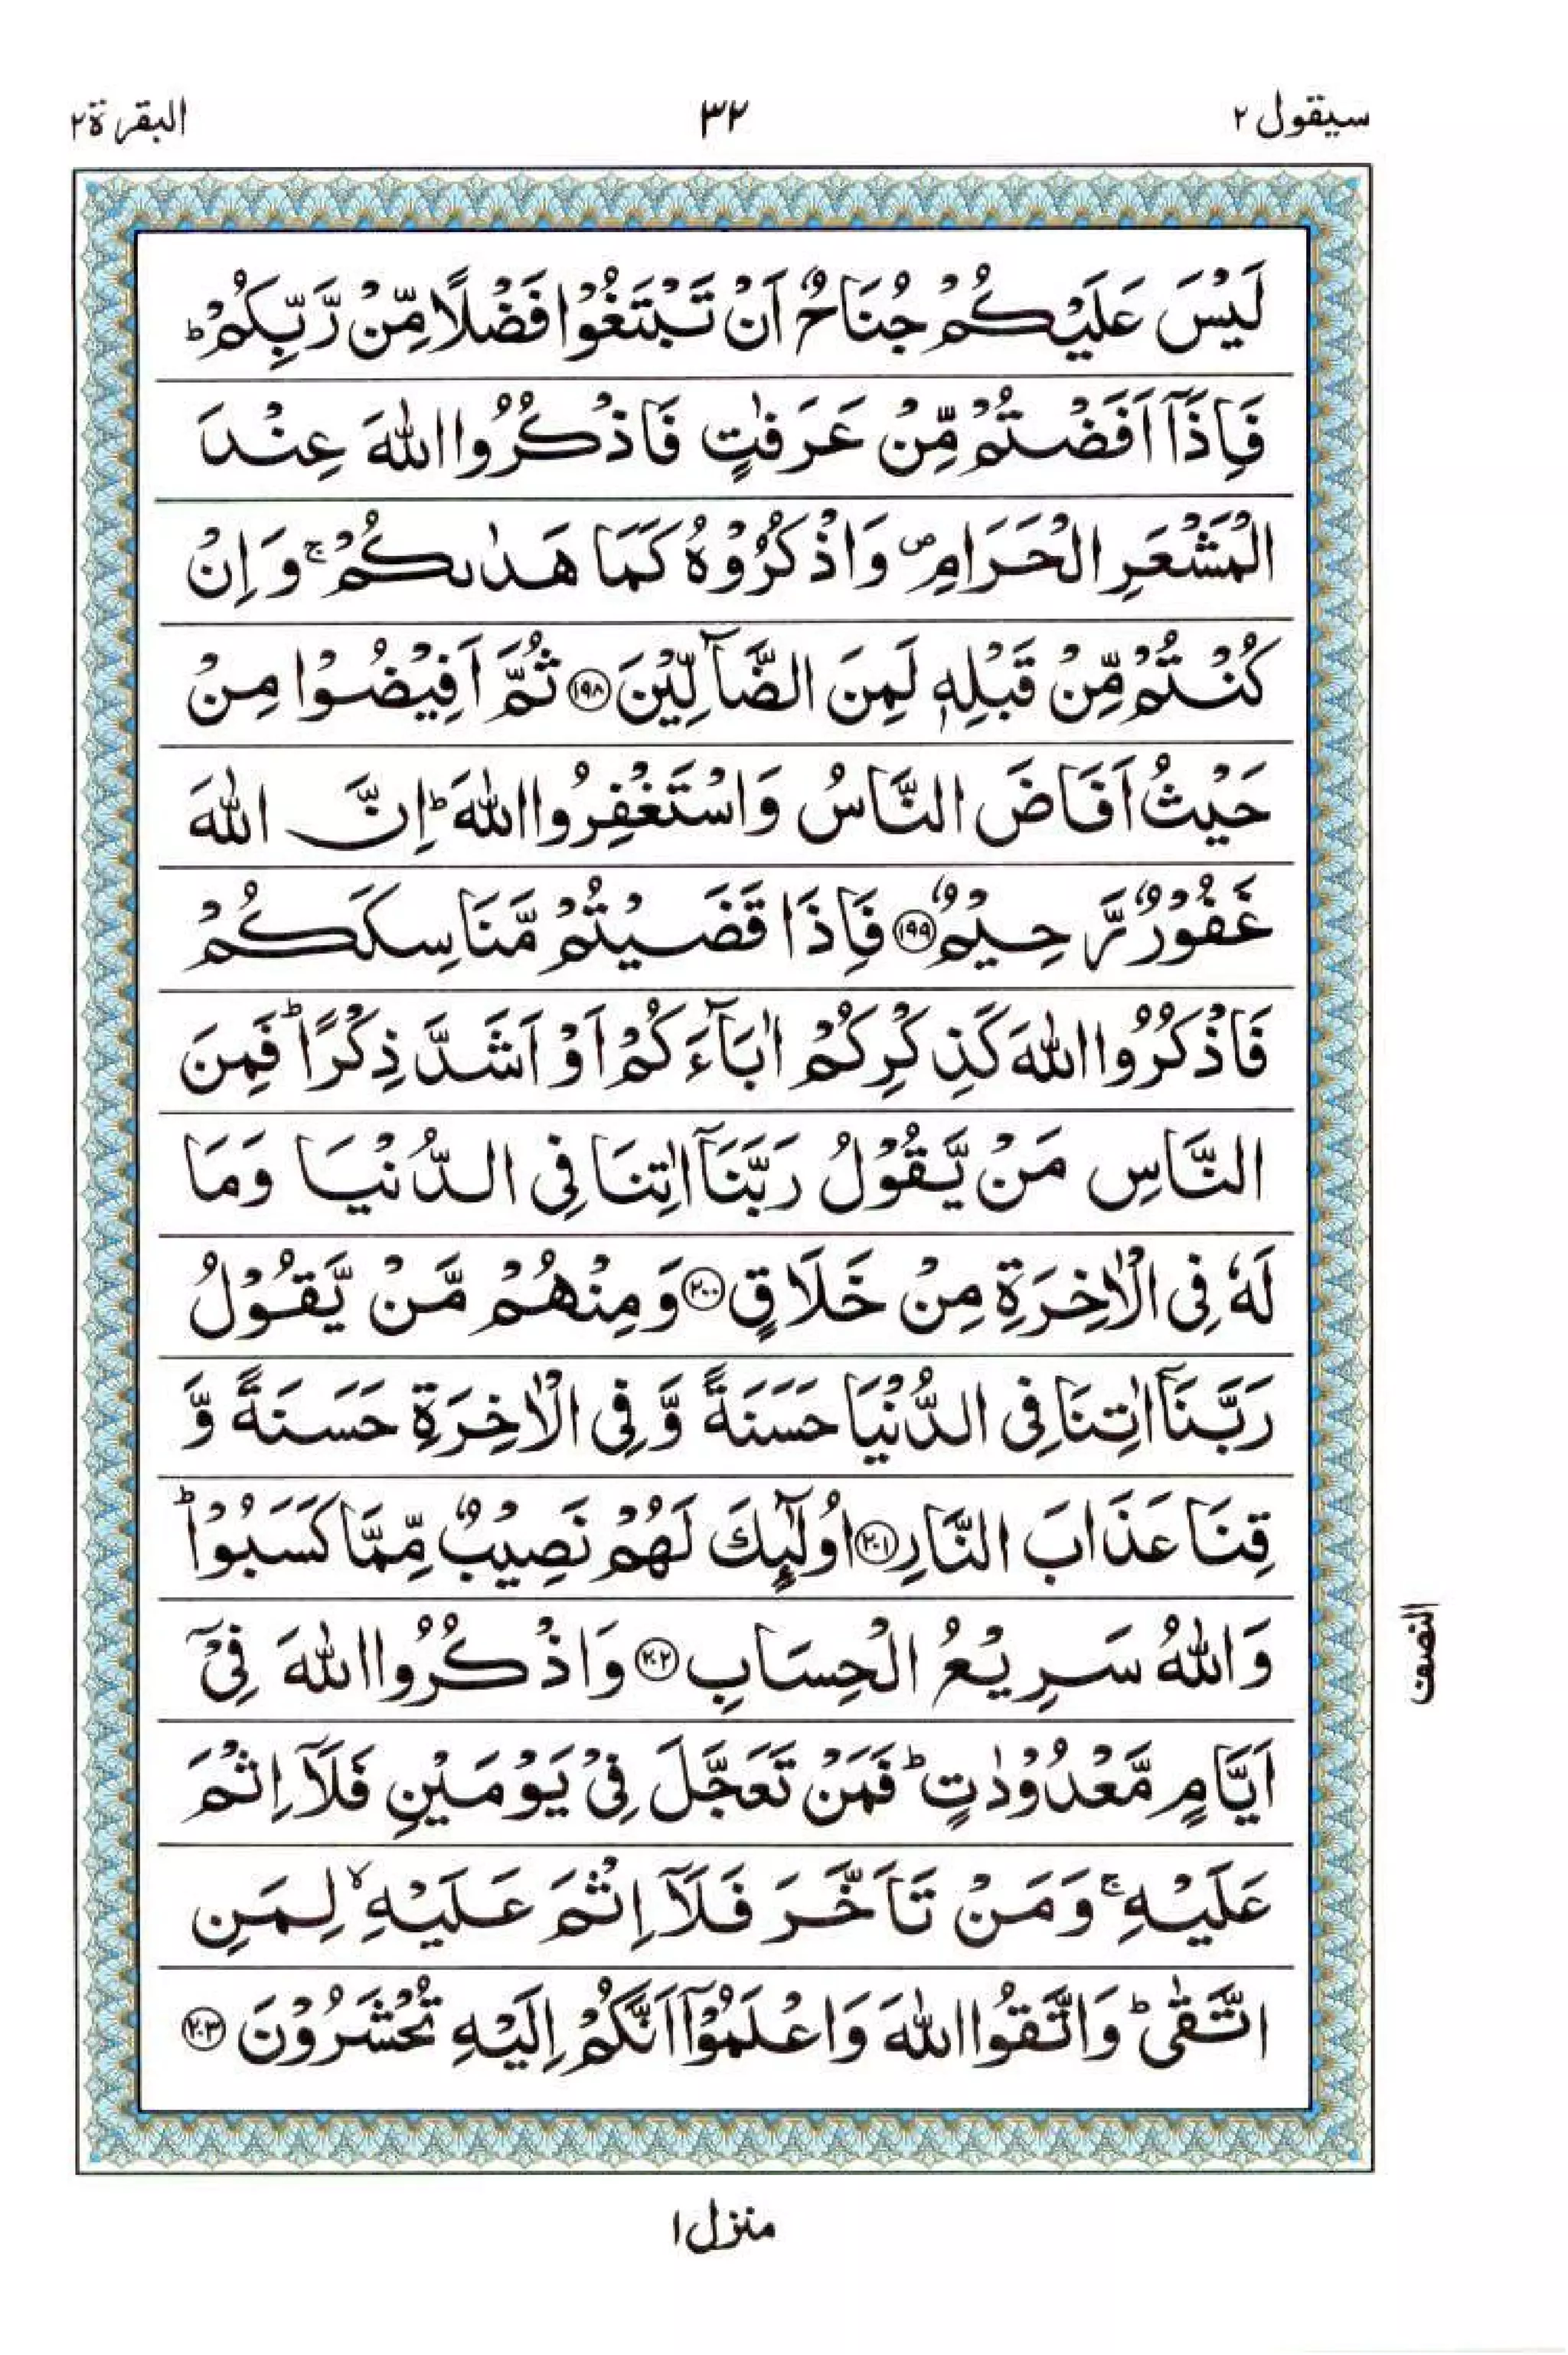 سيقول ٢
٣٢
البقرة ٢
لَيْسَ عَلَيْكُمْ جُنَاحٌ اَنْ تَبْتَغُوْا فَضْلًا مِّنْ رَّبِّكُمْ ؕ
فَاِذَآ اَفَضْتُمْ مِّنْ عَرَفٰتٍ فَاذْكُرُوا اللّٰهَ عِنْدَ
الْمَشْعَرِ الْحَرَامِ ۪ وَاذْكُرُوْهُ كَمَا هَدٰىكُمْ ۚ وَاِنْ
كُنْتُمْ مِّنْ قَبْلِهٖ لَمِنَ الضَّآلِّيْنَ ۝۱۹۸ ثُمَّ اَفِيْضُوْا مِنْ
حَيْثُ اَفَاضَ النَّاسُ وَاسْتَغْفِرُوا اللّٰهَ ؕ اِنَّ اللّٰهَ
غَفُوْرٌ رَّحِيْمٌ ۝۱۹۹ فَاِذَا قَضَيْتُمْ مَّنَاسِكَكُمْ
فَاذْكُرُوا اللّٰهَ كَذِكْرِكُمْ اٰبَآءَكُمْ اَوْ اَشَدَّ ذِكْرًا ؕ فَمِنَ
النَّاسِ مَنْ يَّقُوْلُ رَبَّنَآ اٰتِنَا فِى الدُّنْيَا وَمَا
لَهٗ فِى الْاٰخِرَةِ مِنْ خَلَاقٍ ۝۲۰۰ وَمِنْهُمْ مَّنْ يَّقُوْلُ
رَبَّنَآ اٰتِنَا فِى الدُّنْيَا حَسَنَةً وَّفِى الْاٰخِرَةِ حَسَنَةً وَّ
قِنَا عَذَابَ النَّارِ ۝۲۰۱ اُولٰٓئِكَ لَهُمْ نَصِيْبٌ مِّمَّا كَسَبُوْا ؕ
وَاللّٰهُ سَرِيْعُ الْحِسَابِ ۝۲۰۲ وَاذْكُرُوا اللّٰهَ فِىْٓ
اَيَّامٍ مَّعْدُوْدٰتٍ ؕ فَمَنْ تَعَجَّلَ فِىْ يَوْمَيْنِ فَلَآ اِثْمَ
عَلَيْهِ ۚ وَمَنْ تَاَخَّرَ فَلَآ اِثْمَ عَلَيْهِ ۙ لِمَنِ
اتَّقٰى ؕ وَاتَّقُوا اللّٰهَ وَاعْلَمُوْٓا اَنَّكُمْ اِلَيْهِ تُحْشَرُوْنَ ۝۲۰۳
النصف
منزل ١